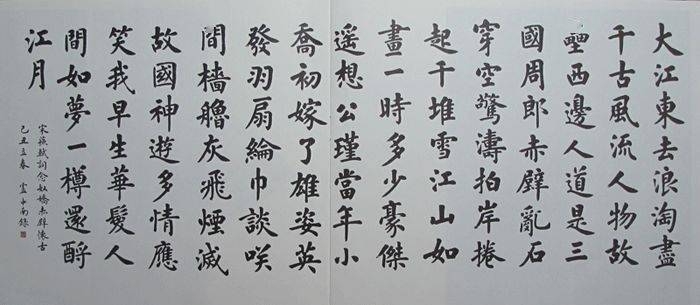 大江東去浪淘盡
千古風流人物故
壘西邊人道是三
國周郎赤壁亂石
穿空驚濤拍岸捲
起千堆雪江山如
畫一時多少豪傑
遥想公瑾當年小
喬初嫁了雄姿英
發羽扇綸巾談咲
間檣艣灰飛煙滅
故國神遊多情應
笑我早生華髮人
間如夢一樽還酹
江月
宋蘇軾詞念奴嬌赤壁懷古
己丑立春盧中南錄